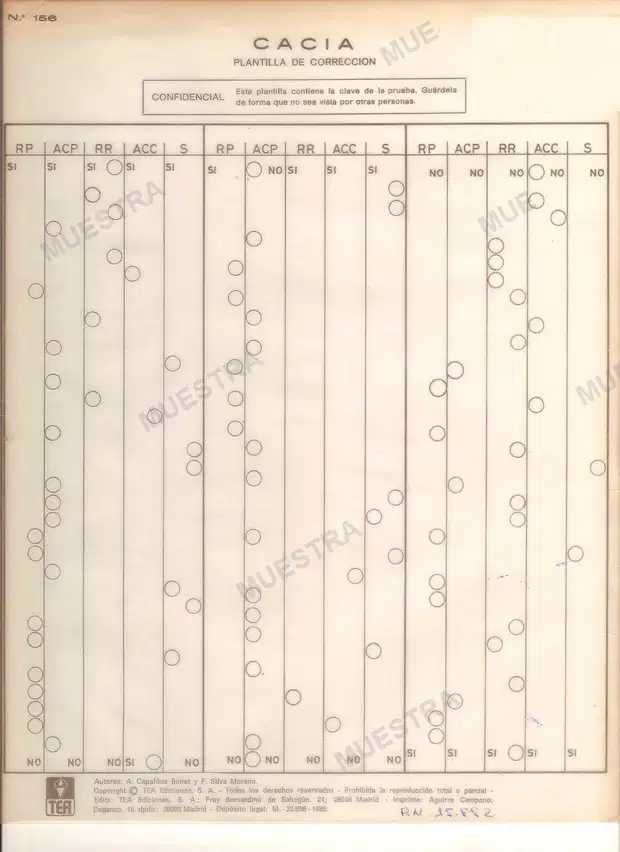 N.º 156
CACIA
PLANTILLA DE CORRECCION
CONFIDENCIAL
Esta plantilla contiene la clave de la prueba. Guárdela
de forma que no sea vista por otras personas.
MUE
RP ACP RR ACC S RP ACP RR ACC S RP ACP RR ACC S
SI SI SI SI SI SI NO SI SI SI NO NO NO NO NO
MUESTRA
MUE
MUESTRA
MUE
MUESTRA
MUESTRA
NO NO NO SI NO NO NO NO NO NO SI SI SI SI SI
TEA
Autores: A. Capafóns Bonet y F. Silva Moreno.
Copyright © TEA Ediciones, S. A. - Todos los derechos reservados - Prohibida la reproducción total o parcial -
Edita: TEA Ediciones, S. A.; Fray Bernardino de Sahagún, 24; 28036 Madrid - Imprime: Aguirre Campano;
Daganzo, 15 dpdo.; 28002 Madrid - Depósito legal: M. - 23.858 - 1985.
RN 15.882